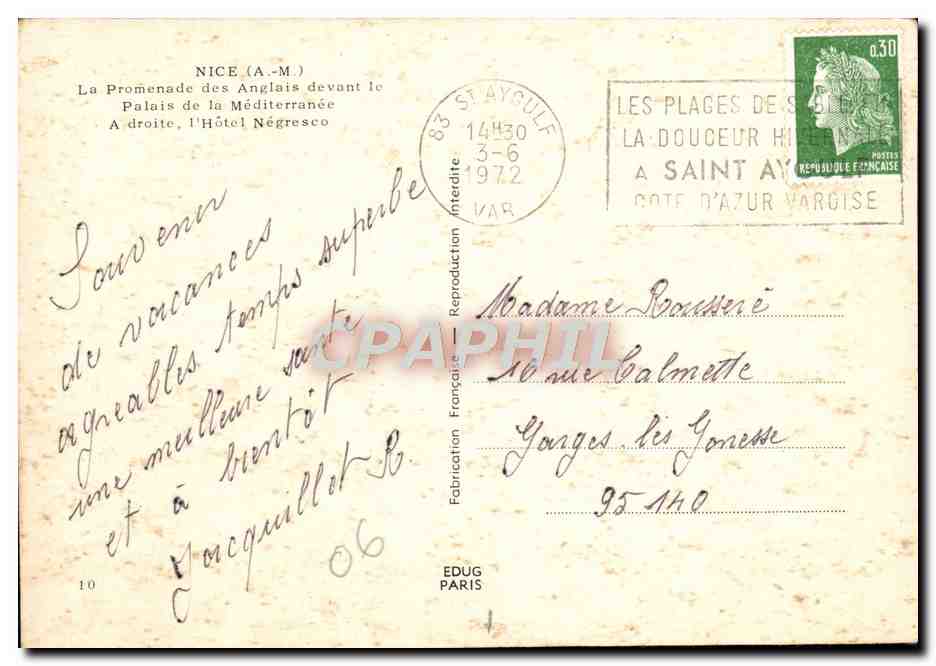 NICE (A.-M.)
La Promenade des Anglais devant le
Palais de la Méditerranée
A droite, l'Hôtel Négresco
Souvenir
de vacances
agréables temps superbe
une meilleure santé
et à bientôt
Jacquillet R.
06
10
Fabrication Française — Reproduction Interdite
EDUG
PARIS
83 ST AYGULF
14H30
3-6
1972
VAR
LES PLAGES DE
LA DOUCEUR
A SAINT AYGULF
COTE D'AZUR VAROISE
0,30
POSTES
REPUBLIQUE FRANÇAISE
Madame Rousseré
16 rue Calmette
Garges les Gonesse
95140
CPAPHIL